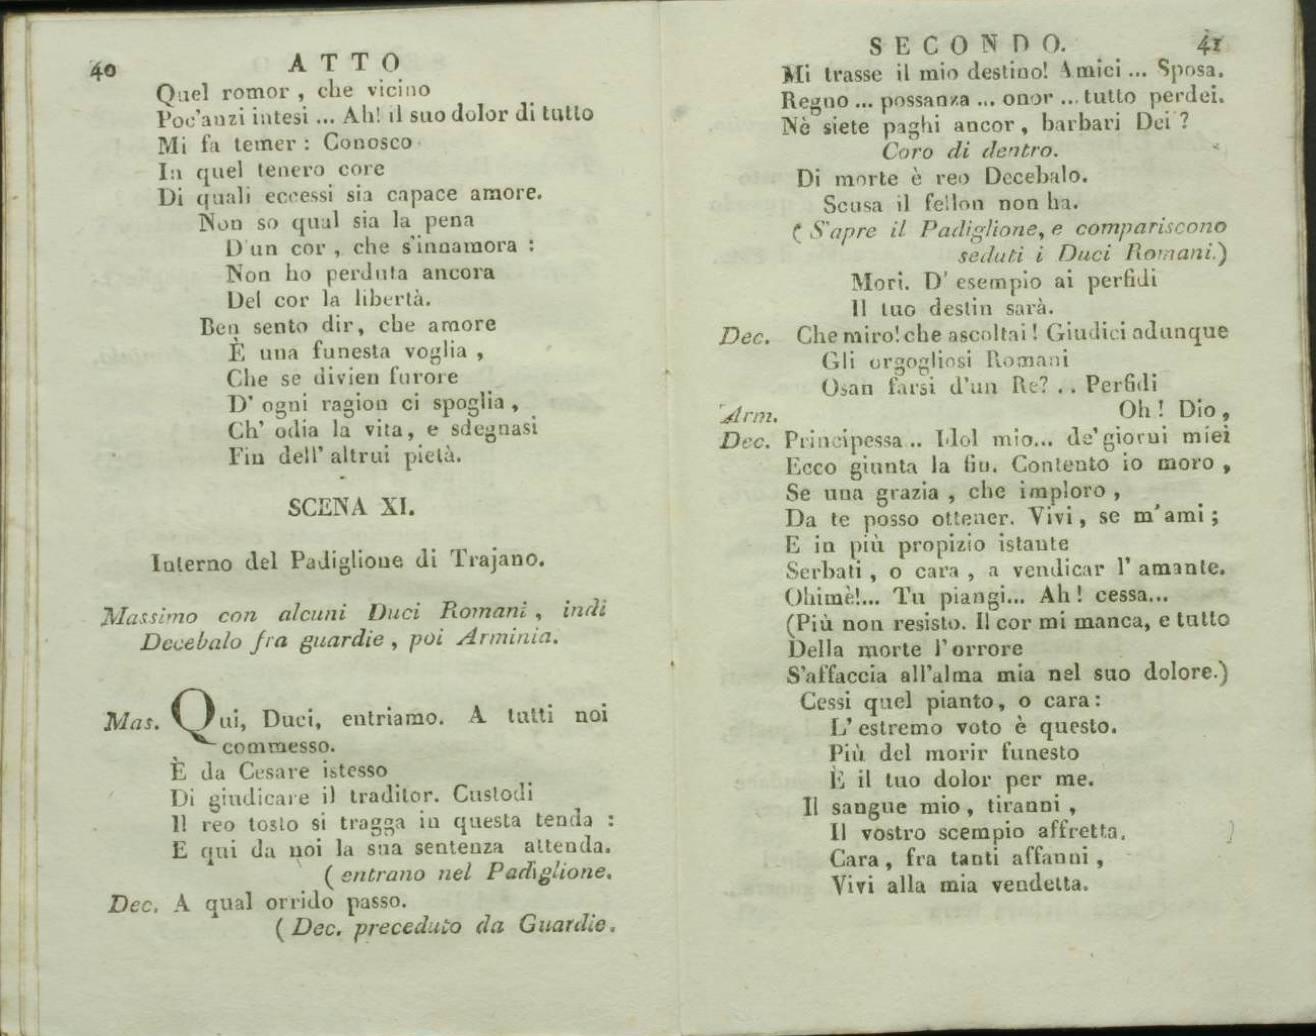 40 ATTO
Quel romor, che vicino
Poc'anzi intesi ... Ah! il suo dolor di tutto
Mi fa temer: Conosco
In quel tenero core
Di quali eccessi sia capace amore.
Non so qual sia la pena
D'un cor, che s'innamora:
Non ho perduta ancora
Del cor la libertà.
Ben sento dir, che amore
È una funesta voglia,
Che se divien furore
D' ogni ragion ci spoglia,
Ch' odia la vita, e sdegnasi
Fin dell' altrui pietà.
SCENA XI.
Interno del Padiglione di Trajano.
Massimo con alcuni Duci Romani, indi
Decebalo fra guardie, poi Arminia.
Mas. Qui, Duci, entriamo. A tutti noi
commesso.
È da Cesare istesso
Di giudicare il traditor. Custodi
Il reo tosto si tragga in questa tenda:
E qui da noi la sua sentenza attenda.
(entrano nel Padiglione.
Dec. A qual orrido passo.
(Dec. preceduto da Guardie.
SECONDO. 41
Mi trasse il mio destino! Amici ... Sposa.
Regno ... possanza ... onor ... tutto perdei.
Nè siete paghi ancor, barbari Dei?
Coro di dentro.
Di morte è reo Decebalo.
Scusa il fellon non ha.
(S'apre il Padiglione, e compariscono
seduti i Duci Romani.)
Mori. D' esempio ai perfidi
Il tuo destin sarà.
Dec. Che miro! che ascoltai! Giudici adunque
Gli orgogliosi Romani
Osan farsi d'un Re? .. Perfidi
Arm. Oh! Dio,
Dec. Principessa .. Idol mio... de' giorni miei
Ecco giunta la fin. Contento io moro,
Se una grazia, che imploro,
Da te posso ottener. Vivi, se m'ami;
E in più propizio istante
Serbati, o cara, a vendicar l' amante.
Ohimè!... Tu piangi... Ah! cessa...
(Più non resisto. Il cor mi manca, e tutto
Della morte l' orrore
S'affaccia all'alma mia nel suo dolore.)
Cessi quel pianto, o cara:
L' estremo voto è questo.
Più del morir funesto
È il tuo dolor per me.
Il sangue mio, tiranni,
Il vostro scempio affretta.
Cara, fra tanti affanni,
Vivi alla mia vendetta.